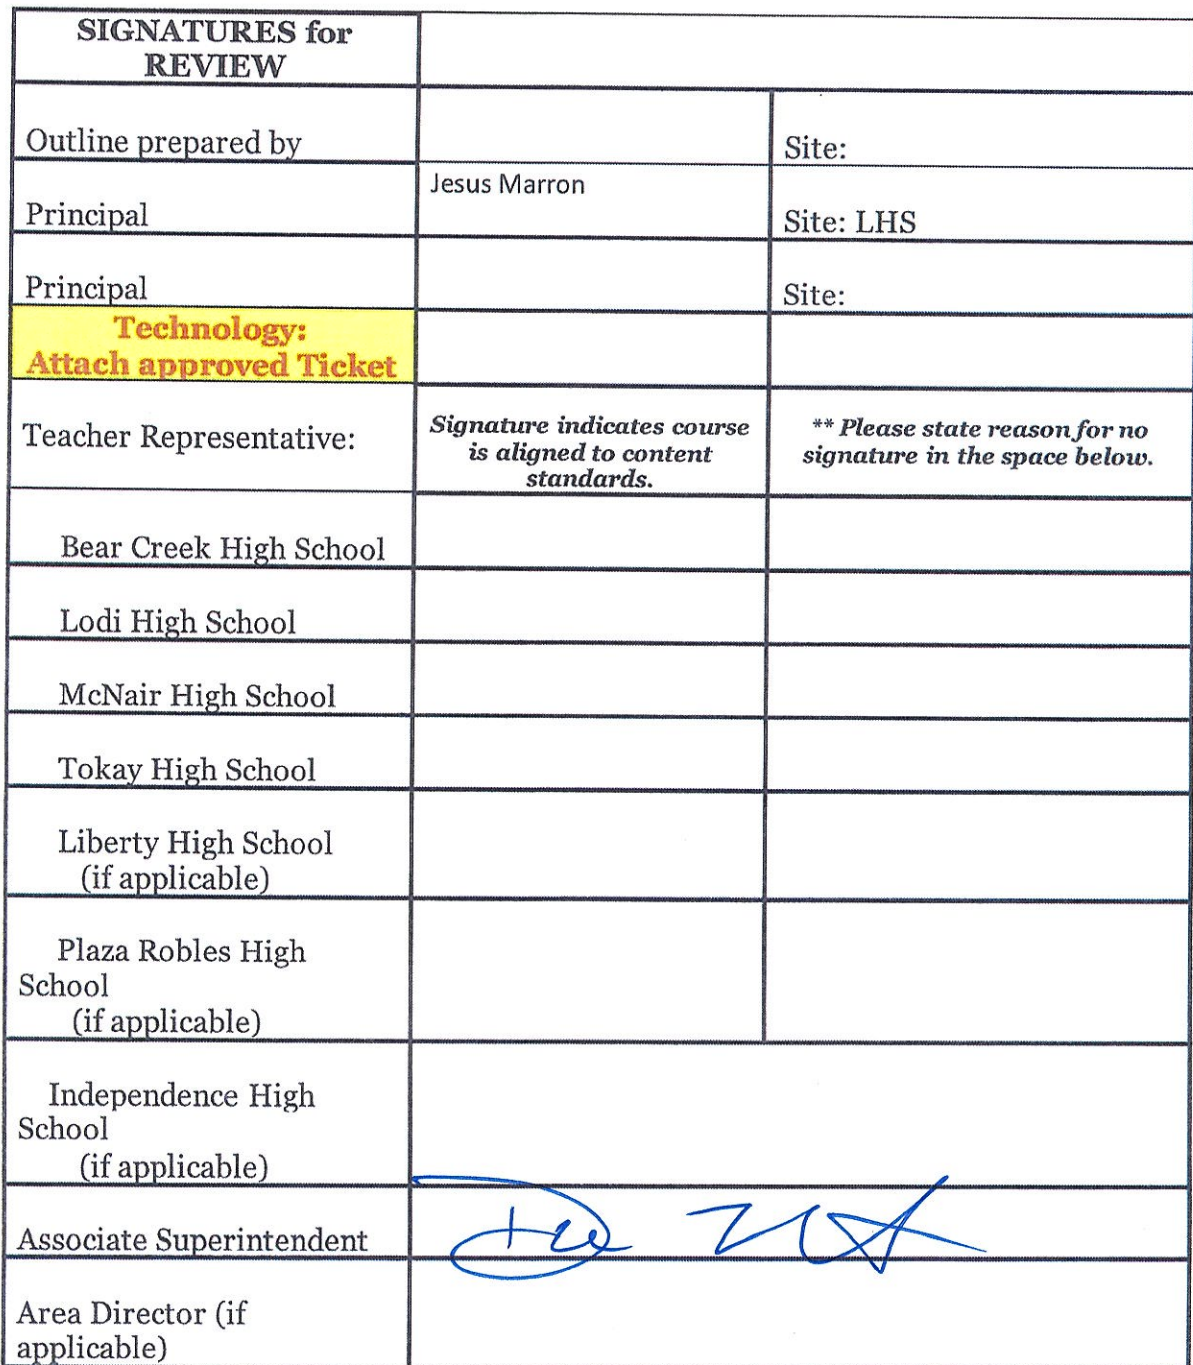 SIGNATURES for
REVIEW
Outline prepared by
Site:
Jesus Marron
Principal
Site: LHS
Principal
Site:
Technology:
Attach approved Ticket
Teacher Representative:
Signature indicates course
is aligned to content
standards.
** Please state reason for no
signature in the space below.
Bear Creek High School
Lodi High School
McNair High School
Tokay High School
Liberty High School
(if applicable)
Plaza Robles High
School
(if applicable)
Independence High
School
(if applicable)
Associate Superintendent
Area Director (if
applicable)